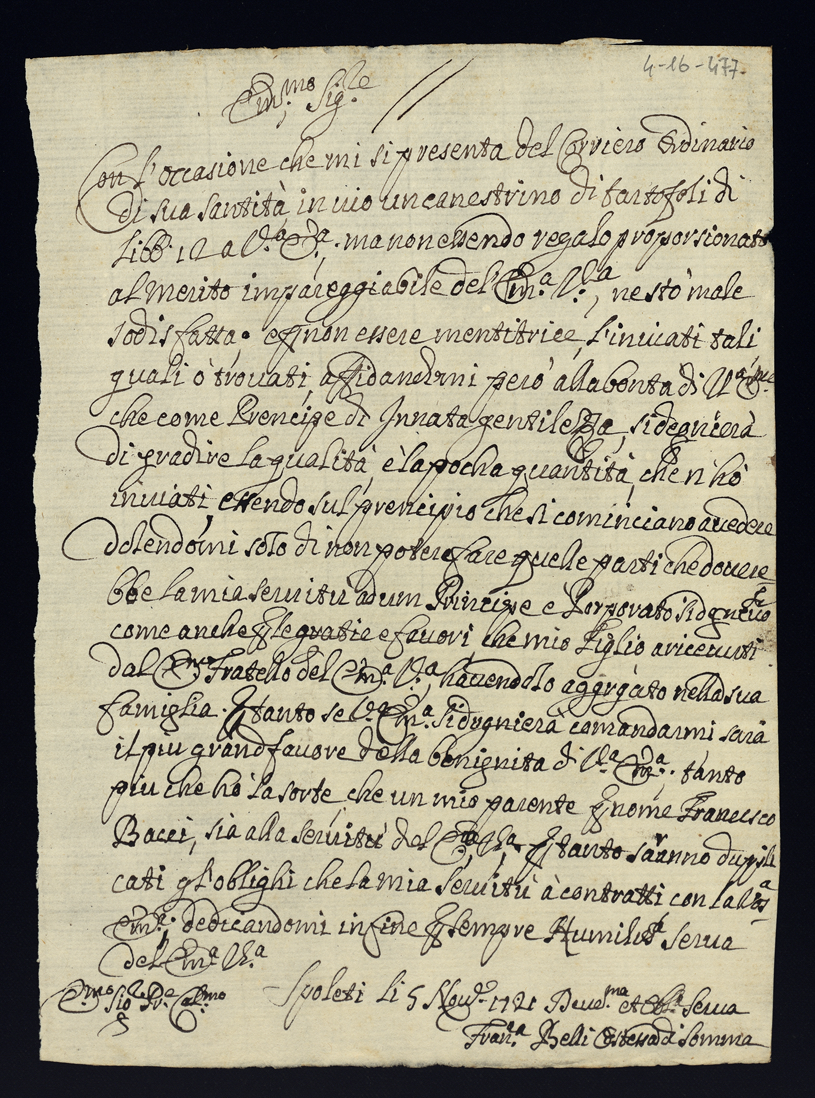 4-16-477.
Em.mo Sig.re
Con l'occasione che mi si presenta del Corriero Ordinario
di sua santità, inuio un canestrino di tartofoli di
Libb. 12 a V.a Em.a ma non essendo regalo proporsionato
al merito impareggiabile del'Em.a V.a, ne stò male
sodisfatta. e p non essere mentitrice, l'inuiati tali
quali ò trouati, affidandomi però alla bontà di V.a
che come Prencipe di Innata gentilezza, si degnierà
di gradire la qualità, è la pocha quantità, che n'hò
inuiati, essendo sul prencipio che si cominciano a uedere
dolendomi solo di non poter fare quelle parti che douere=
bbe la mia seruitù ad um Principe e Porporato
come anche p le gratie e fauori, che mio Figlio a riceuuti
dal Fratello del Em.a V.a, hauendolo aggrgato nella sua
famiglia. p tanto se V.a Em.a si degnierà comandarmi sarà
il piu grand fauore della benignita di V.a Em.a. tanto
piu che hò la sorte, che un mio parente p nome Francesco
Bacci, sia alla seruitù del Em.a V.a p tanto saranno dupli
cati gl'oblighi che la mia seruitù à contratti con la
Em.a; dedicandomi in fine p sempre Humilis.a serua
del Em.a V.a
Spoleti li 5 Nou. 1721 et Obl.a Serua
Em.mo Sig.re
Fran.a Belli di Somma